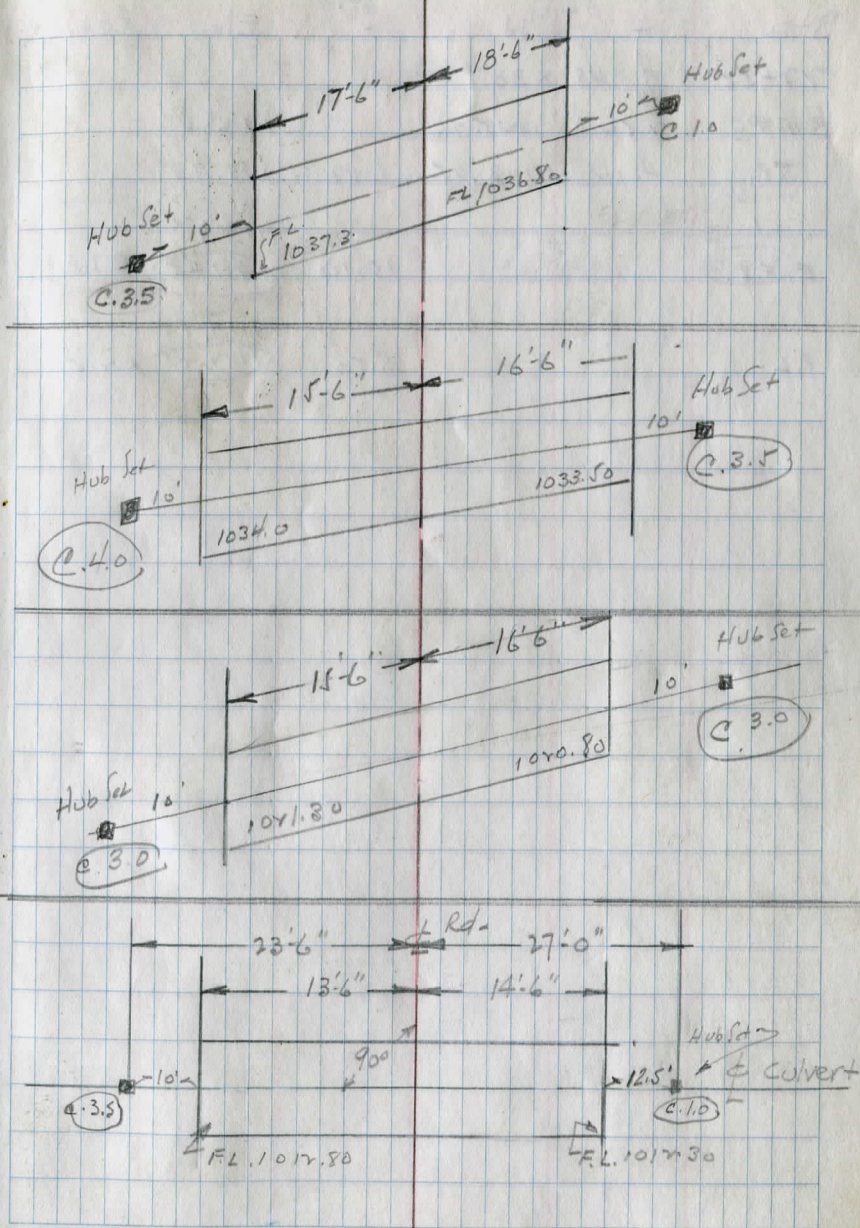 17'-6" 18'-6"
Hub Set
10'
C 1.0
FL 1036.80
Hub Set
10'
FL
1037.3
C.3.5
15'-6" 16'-6"
Hub Set
10'
C.3.5
Hub Set
10'
1033.50
1034.0
C.4.0
15'-6" 16'-6"
Hub Set
10'
C 3.0
1020.80
Hub Set
10'
1021.30
C.3.0
℄ Rd.
23'-6" 27'-0"
13'-6" 14'-6"
Hub Set
90°
10' 12.5' ℄ Culvert
C.3.5 C.1.0
F.L. 1012.80 F.L. 1012.30